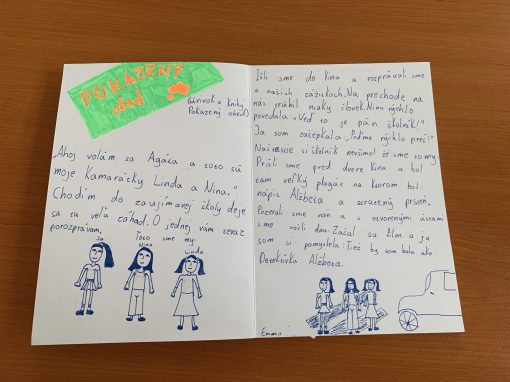 POKAZENÝ
obed
(úrivok z knihy
Pokazený obed)
"Ahoj volám sa Agáta a toto sú
moje Kamarátky Linda a Nina."
Chodím do zaujímavej školy deje
sa tu veľa záhad. O jednej vám teraz
porozprávam,
Toto sme my:
Ja
Nina
Linda
Išli sme do Kina a rozprávali sme
o našich zážitkoch. Na prechode na
nás trúbil nejaký človek. Nina rýchlo
povedala: "Veď to je pán školník!"
Ja som zašepkala: "Poďme rýchlo preč!"
Našťastie si školník nevšimol že sme to my.
Prišli sme pred dvere Kina a bol
tam veľký plagát na ktorom bol
nápis Alžbeta a stratený prsteň.
Pozerali sme naň a s otvorenými ústami
sme vošli dnu. Začal sa film a ja
som si pomyslela: Tiež by som bola ako
Detektívka Alžbeta.